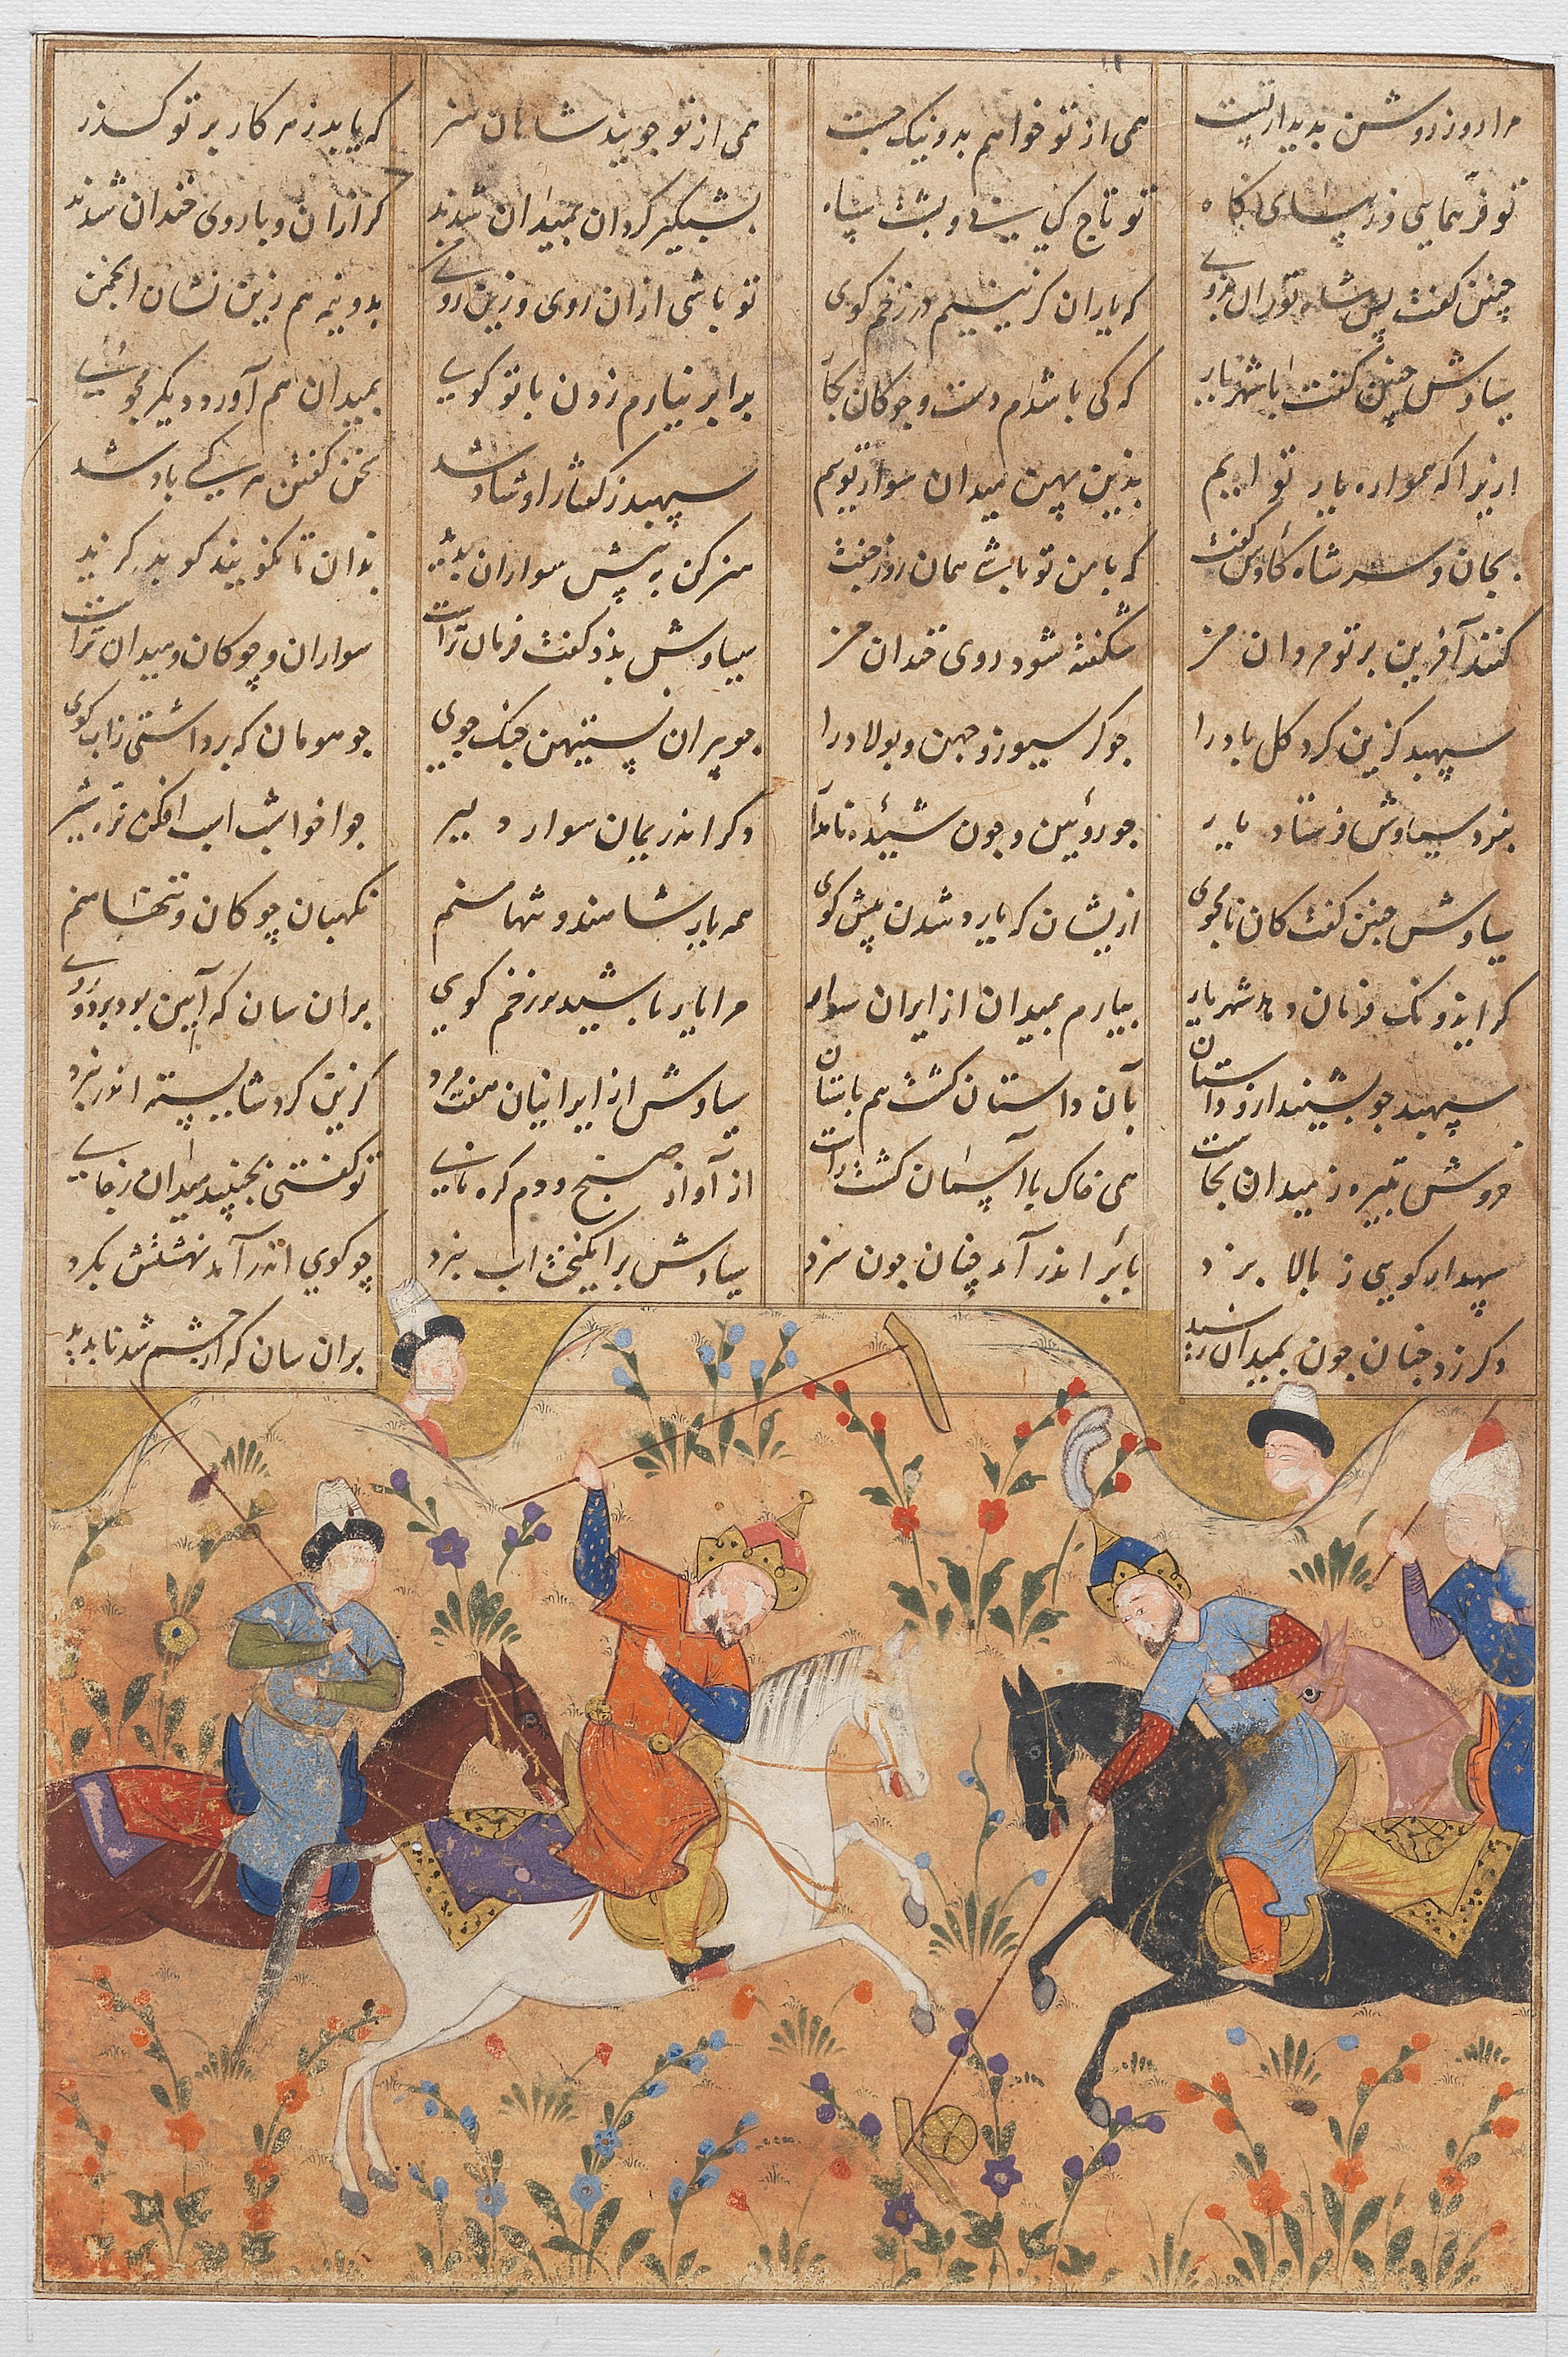 مرا روز روشن بدیدار تست همی از تو خواهم بد و نیک جست همی از تو جویند شاهان هنر که یابد ز هر کار بر تو گذر
تو فر همایی و زیبای گاه تو تاج کیانی و پشت سپاه بشبگیر گردان بمیدان شدند گرازان و با روی خندان شدند
چنین گفت پس شاه توران بدوی که یاران گزینیم در زخم گوی تو باشی ازان روی و زین روی بدو نیمه هم زین نشان انجمن
سیاوش چنین گفت با شهریار که کی باشدم دست و چوکان بجا برابر نیارم زدن با تو گوی بمیدان هم آورد دیگر بجوی
ازیرا که همواره یار توایم بدین پهن میدان سوار توایم سپهبد ز گفتار او شاد شد سخن گفتن هر کسی باد شد
بجان و سر شاه کاوس گفت که با من تو باشی همان روز جفت هنر کن به پیش سواران پدید بدان تا نگویند کو بد گزید
کنند آفرین بر تو مردان من شکفته شود روی خندان من سیاوش بدو گفت فرمان تراست سواران و چوکان و میدان تراست
سپهبد گزین کرد کلباد را چو کرسیوز و جهن و بولاد را چو پیران نستیهن جنک جوی چو هومان که برداشتی زاب گوی
بنزد سیاوش فرستاد یار چو رویین و چون شیده نامدار دگر اندریمان سوار دلیر چو اخواشت اسب افکن نره شیر
سیاوش چنین گفت کان نامجوی ازیشان که یارد شدن پیش گوی همه یار شاهند و تنها منم نگهبان چوکان و تنها منم
گر ایدونک فرمان دهد شهریار بیارم بمیدان از ایران سوار مرا یار باشید در زخم گوی بران سان که آیین بود بر دو روی
سپهبد چو بشنید ازو داستان بآن داستان گشت هم باستان سیاوش از ایرانیان هفت مرد گزین کرد شایسته اندر نبرد
خروش تبیره ز میدان بخاست همی خاک با آسمان گشت راست از آواز صنج و دم کره نای تو گفتی بجنبید میدان ز جای
سپهدار گویی ز بالا بزد بابر اندر آمد چنان چون سزد سیاوش برانگیخت اسب نبرد چو گوی اندر آمد نهشتش بگرد
دگر زد چنان چون بمیدان رسید بران سان که از چشم شد ناپدید